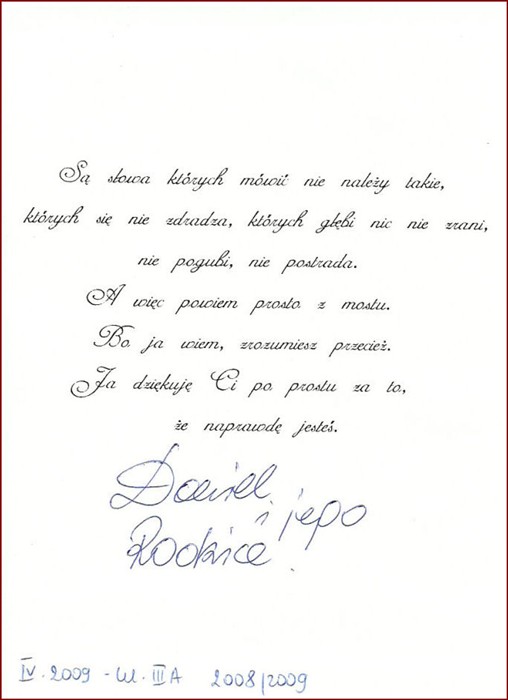 Są słowa których mówić nie należy takie,
których się nie zdradza, których głębi nic nie zrani,
nie pogubi, nie postrada.
A więc powiem prosto z mostu.
Bo ja wiem, zrozumiesz przecież.
Ja dziękuję Ci po prostu za to,
że naprawdę jesteś.
Daniel
i jego
Rodzice
IV. 2009 - kl. III A 2008/2009